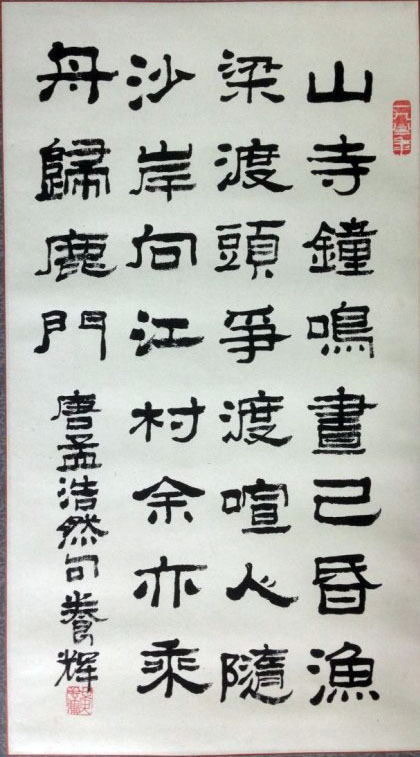 山寺鐘鳴晝已昏漁
梁渡頭爭渡喧人隨
沙岸向江村余亦乘
舟歸鹿門
唐孟浩然句養輝